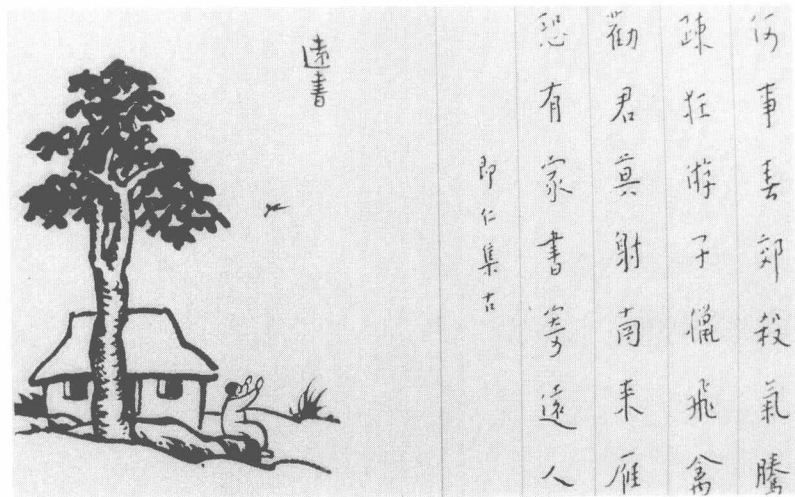 何事春郊殺氣騰
疎狂游子獵飛禽
勸君莫射南來雁
恐有家書寄遠人
即仁集古
遠書